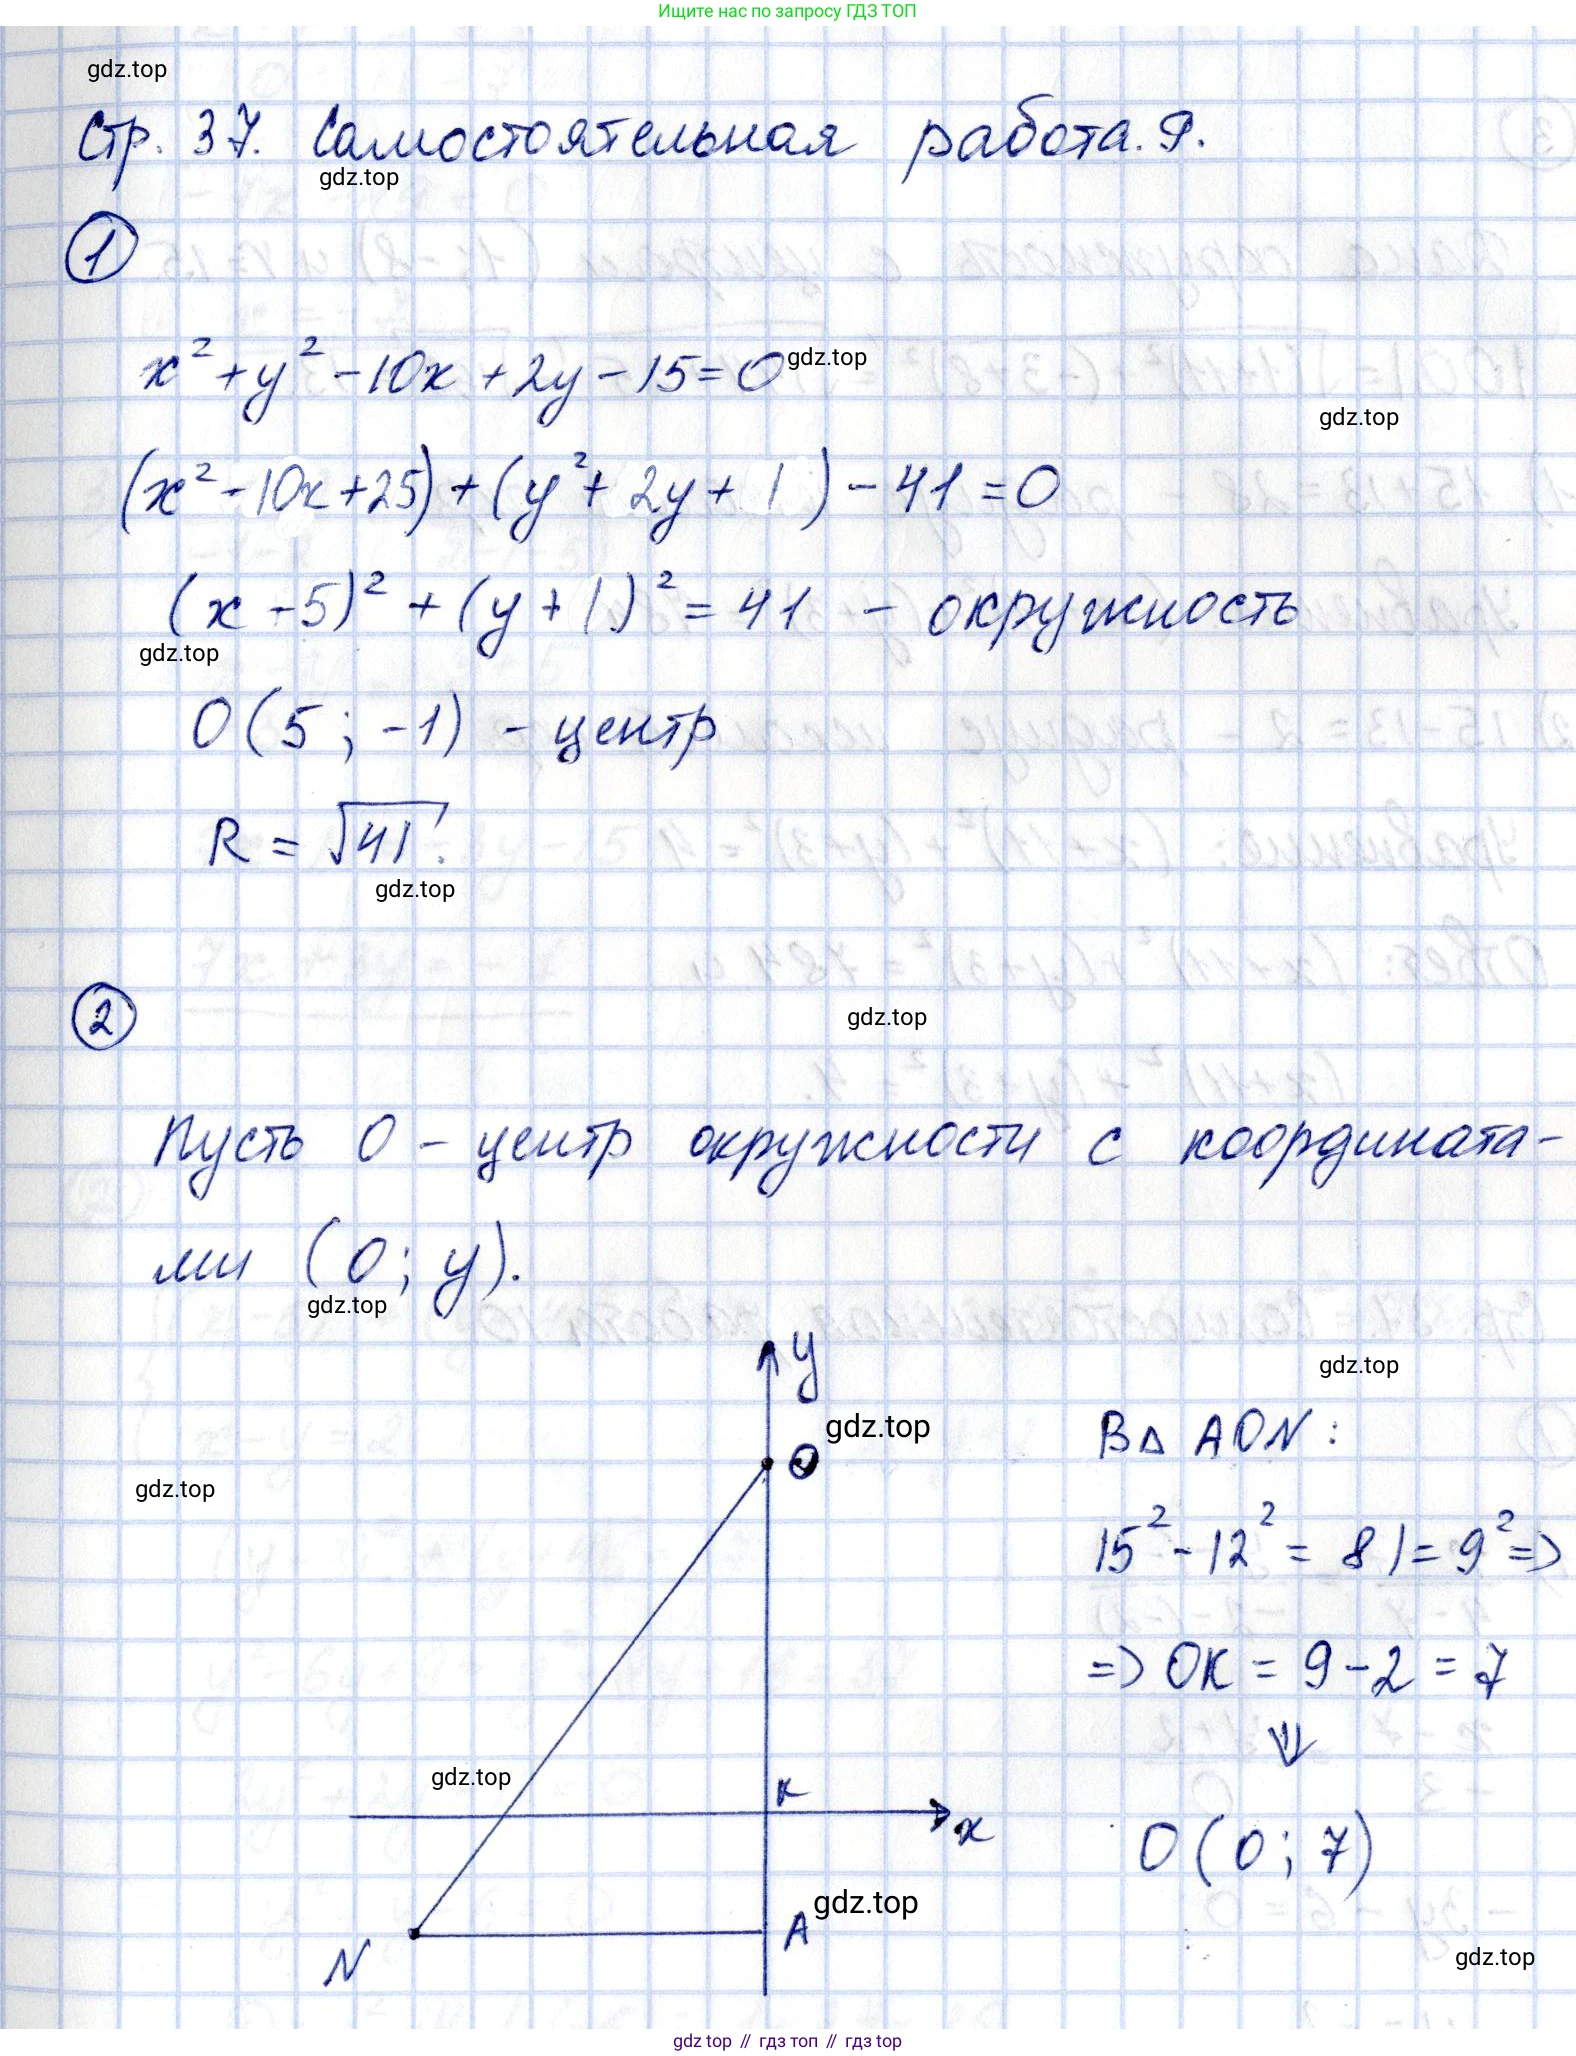 Ищите нас по запросу ГДЗ ТОП
gdz.top
Стр. 37. Самостоятельная работа. 9.
gdz.top
1
x² + y² - 10x + 2y - 15 = 0
gdz.top
gdz.top
(x² - 10x + 25) + (y² + 2y + 1) - 41 = 0
(x - 5)² + (y + 1)² = 41 - окружность
gdz.top
O(5; -1) - центр
R = √41.
gdz.top
2
gdz.top
Пусть O - центр окружности с координата-
ми (0; y).
gdz.top
y
gdz.top
gdz.top
O
В △ AON:
gdz.top
15² - 12² = 81 = 9² =>
=> OK = 9 - 2 = 7
⇓
gdz.top
K
x
O(0; 7)
gdz.top
A
N
gdz.top
gdz top // гдз топ // гдз top